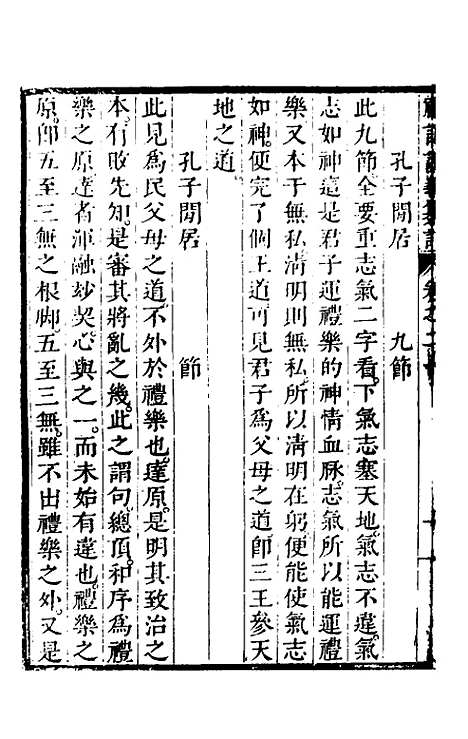 孔子閒居　九節
此九節全要重志氣二字看。下氣志塞天地。氣志不違。氣
志如神這是君子運禮樂的神情血脉。志氣所以能運禮
樂又本于無私淸明則無私。所以淸明在躬便能使氣志
如神。便完了個王道可見君子爲父母之道卽三王參天
地之道。
孔子閒居　節
此見爲民父母之道不外於禮樂也。達原。是明其致治之
本。有敗先知。是審其將亂之幾。此之謂句。總頂。和序爲禮
樂之原達者渾融玅契。心與之一。而未始有違也。禮樂之
原。卽五至三無之根脚。五至三無。雖不出禮樂之外。又是